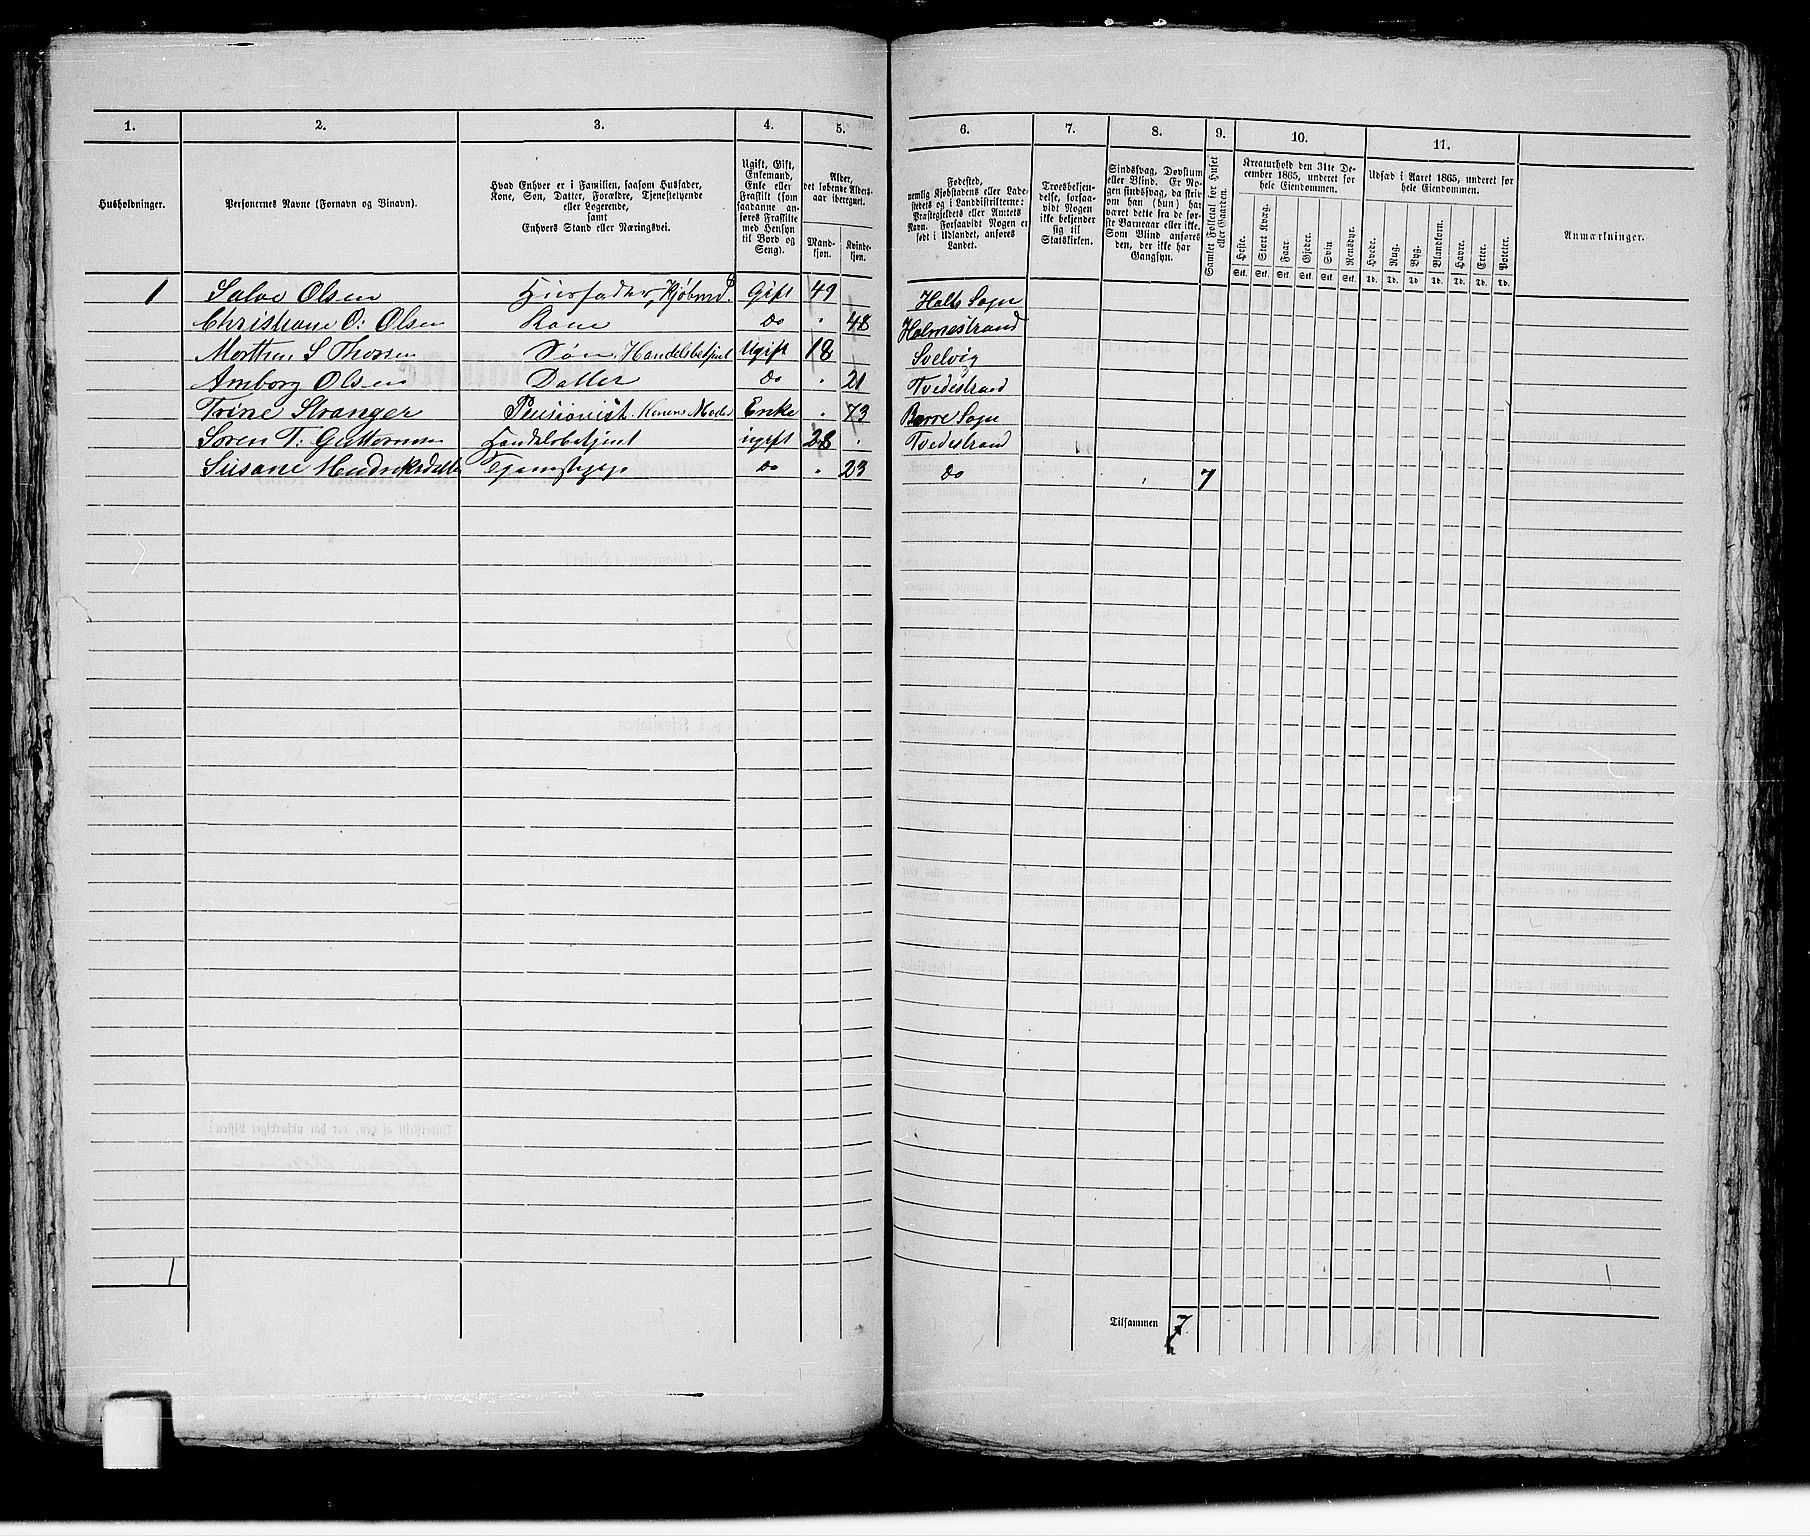 1. 2. 3. 4. 5. 6. 7. 8. 9. 10. 11.
Husholdninger.
Personernes Navne (Fornavn og Binavn).
Hvad Enhver er i Familien, saasom Husfader,
Kone, Søn, Datter, Forældre, Tjenestetyende
eller Logerende,
samt
Enhvers Stand eller Næringsvei.
Ugift, Gift,
Enkemand,
Enke eller
Fraskilt (som
saadanne an-
føres Fraskilte
med Hensyn
til Bord og
Seng).
Alder,
det løbende Alders-
aar iberegnet.
Mand-
kjøn.
Kvinde-
kjøn.
Fødested,
nemlig Kjøbstadens eller Lade-
stedets og i Landdistrikterne:
Præstegjeldets eller Amtets
Navn. Forsaavidt Nogen er
født i Udlandet, anføres
Landet.
Troesbekjen-
delse, forsaa-
vidt Nogen
ikke bekjender
sig til
Statskirken.
Sindssvag, Døvstum
eller Blind. Er No-
gen sindssvag, da skriv
om han (hun) har
været dette fra de før-
ste Barneaar eller ikke.
Som Blind anføres
den, der ikke har
Gangsyn.
Samlet Folketal for Huset
eller Gaarden.
Kreaturhold den 31te De-
cember 1865, underet for
hele Eiendommen.
Heste. Stort Kvæg. Faar. Gjeder. Svin Rensdyr.
Stk. Stk. Stk. Stk. Stk. Stk.
Udsæd i Aaret 1865, underet for
hele Eiendommen.
Hvede. Rug. Byg. Blandkorn. Havre. Erter. Poteter.
Td. Td. Td. Td. Td. Td. Td.
Anmærkninger.
1 Salve Olsen Husfader, Kjøbmd. Gift 49 Holts Sogn
Christiane O: Olsen Kone do " 48 Holmestrand
Morthen S Thorsen Søn, Handelsbetjent Ugift 18 Svelvig
Amborg Olsen Datter do " 21 Tvedestrand
Trine Stranger Pensionist. Konens Moder Enke " 73 Borre Sogn
Søren T: Guttormsen Handelsbetjent ugift 28 " Tvedestrand
Susane Hendriksdatter Tjenestepige do " 23 do 7
1
Tilsammen 7